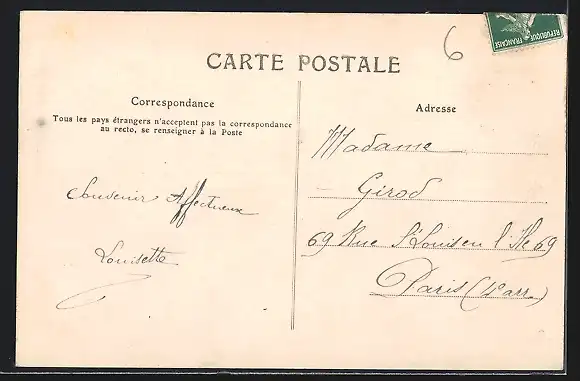 6
RÉPUBLIQUE FRANÇAISE
CARTE POSTALE
Correspondance
Tous les pays étrangers n'acceptent pas la correspondance
au recto, se renseigner à la Poste
Souvenir Affectueux
Louisette
Adresse
Madame
Girod
69 Rue St Louis en l'Ile 69
Paris (4e arr)